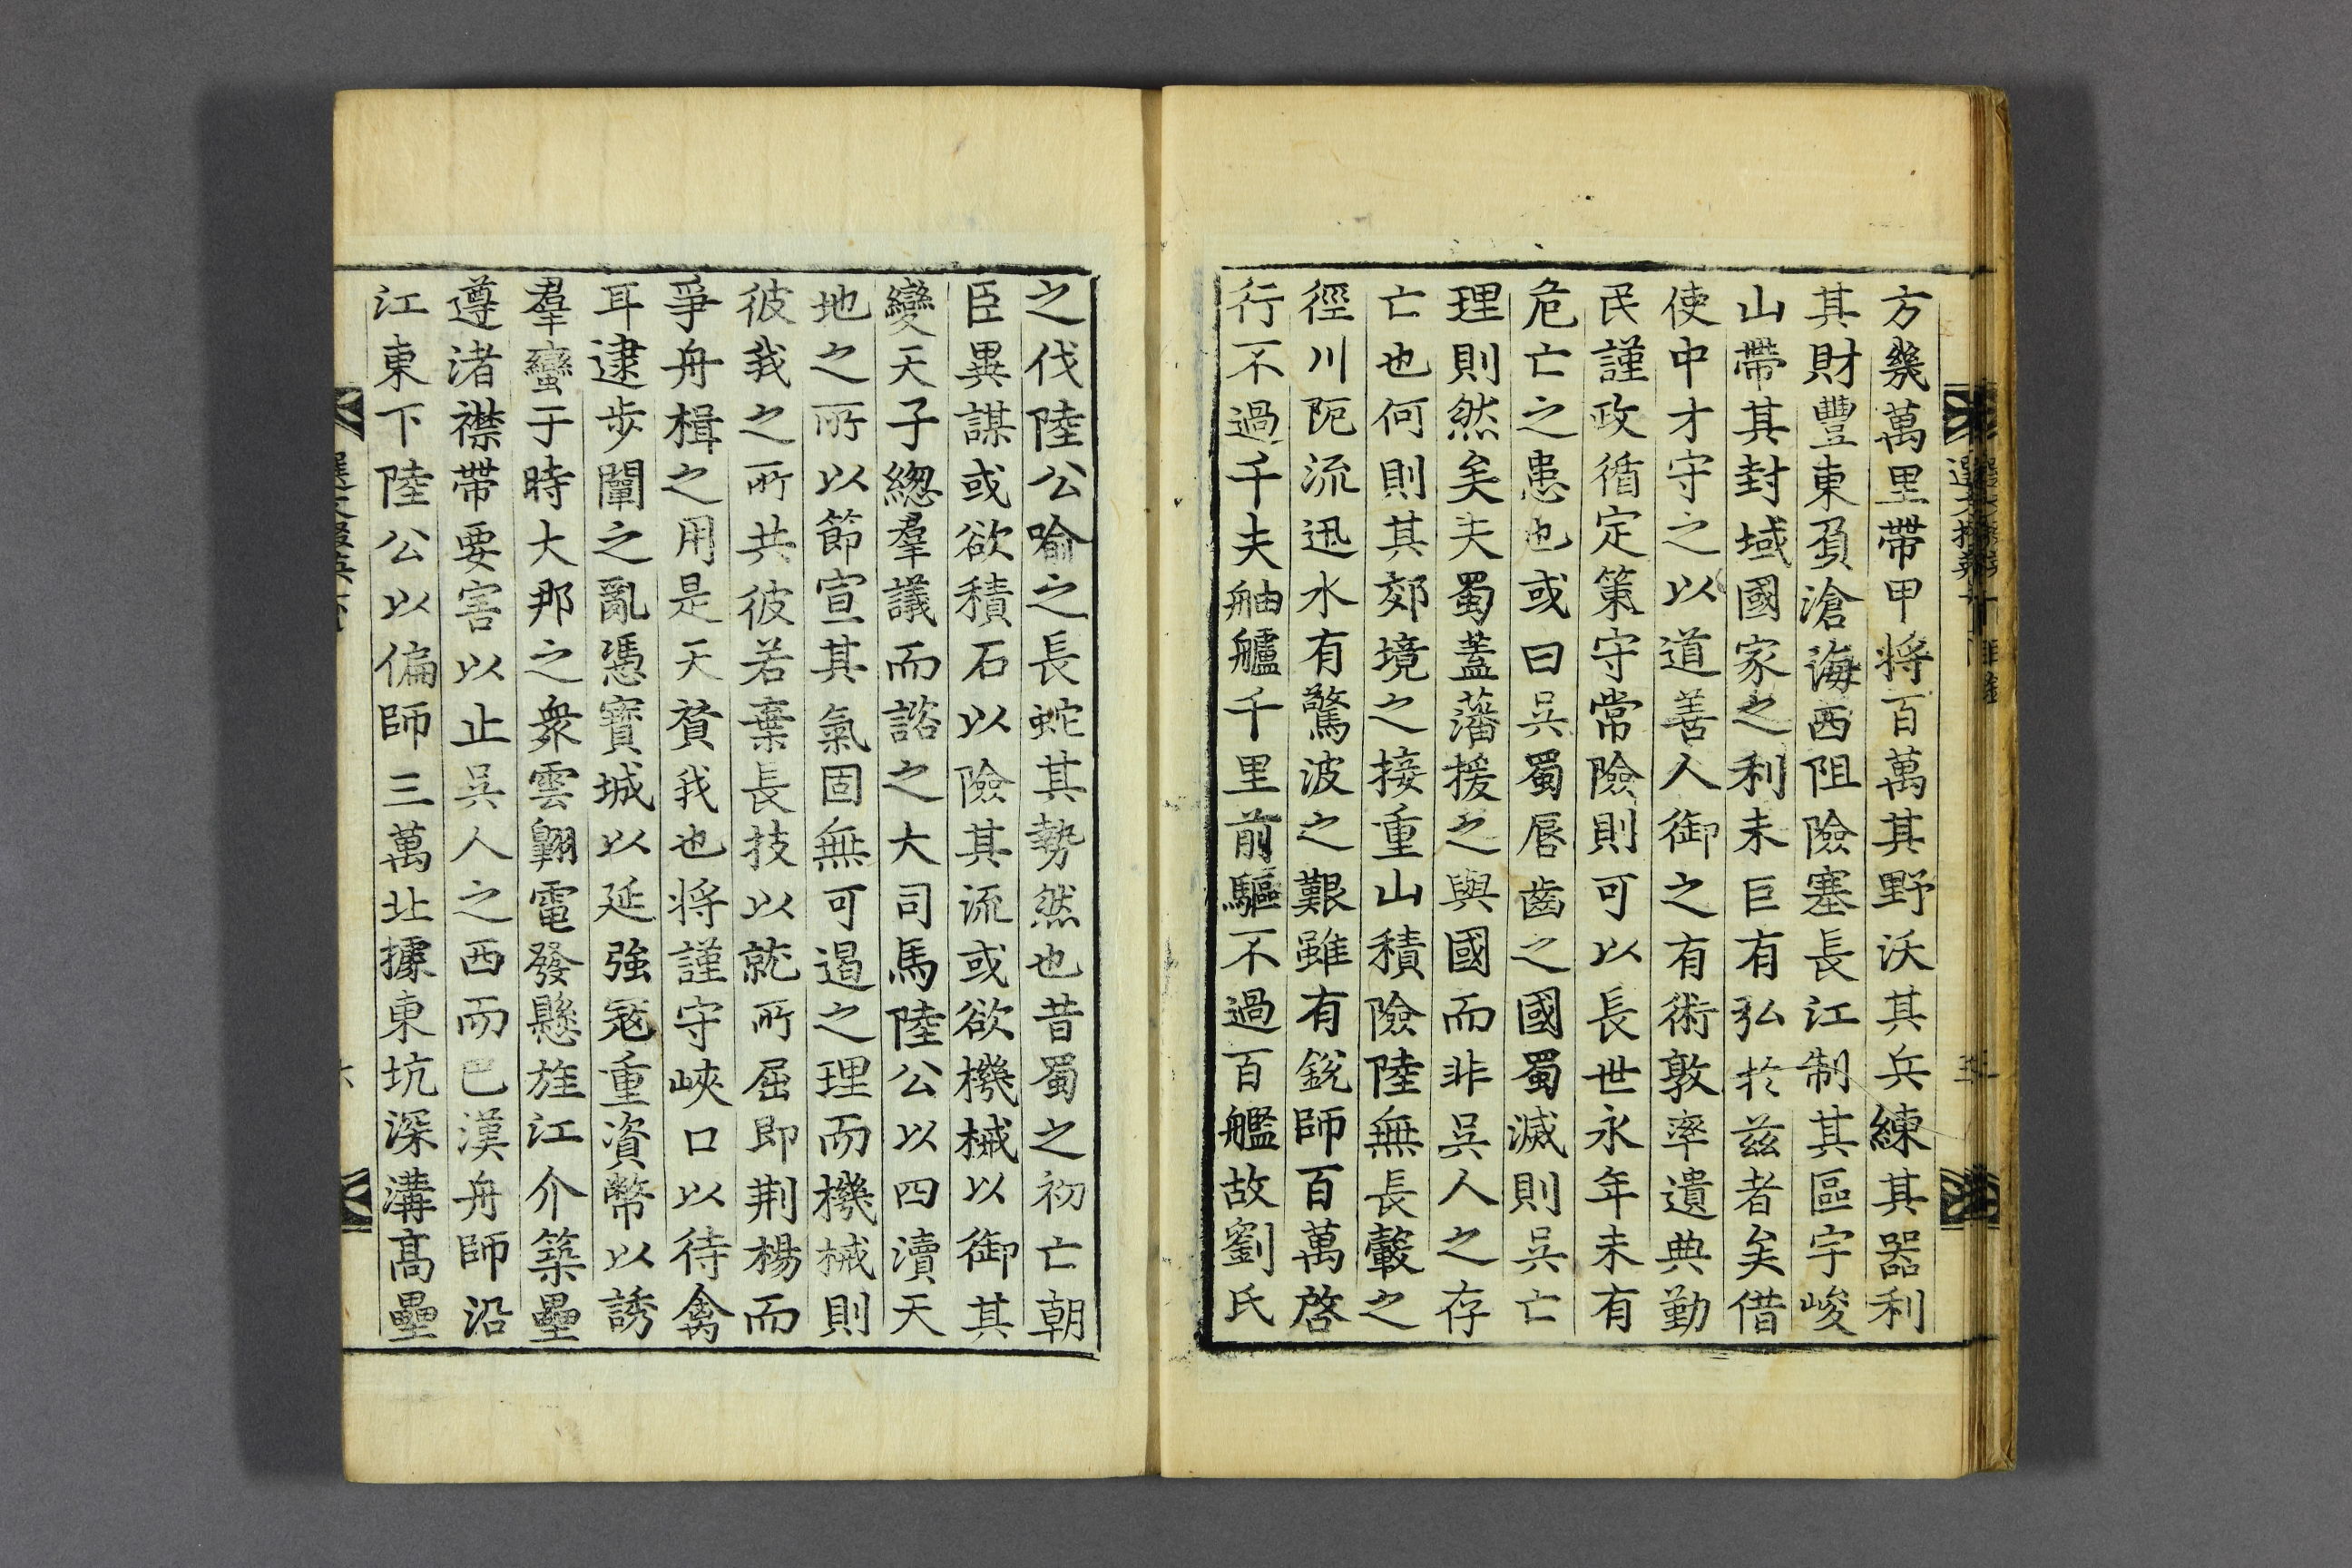 方幾萬里帶甲将百萬其野沃其兵練其器利
其財豐東負滄海西阻險塞長江制其區宇峻
山帶其封域國家之利未巨有弘於兹者矣借
使中才守之以道善人御之有術敦率遺典勤
民謹政循定策守常險則可以長世永年未有
危亡之患也或曰吳蜀唇齒之國蜀滅則吳亡
理則然矣夫蜀蓋藩援之與國而非吳人之存
亡也何則其郊境之接重山積險陸無長轂之
徑川阨流迅水有驚波之艱雖有銳師百萬啓
行不過千夫舳艫千里前驅不過百艦故劉氏
之伐陸公喻之長蛇其勢然也昔蜀之初亡朝
臣異謀或欲積石以險其流或欲機械以御其
變天子緫羣議而諮之大司馬陸公以四瀆天
地之所以節宣其氣固無可遏之理而機械則
彼我之所共彼若棄長技以就所屈即荆楊而
爭舟楫之用是天贊我也将謹守峽口以待禽
耳逮步闡之亂憑寳城以延強寇重資幣以誘
羣蠻于時大邦之衆雲翺電發懸旌江介築壘
遵渚襟帶要害以止吳人之西而巴漢舟師沿
江東下陸公以偏師三萬北據東坑深溝高壘